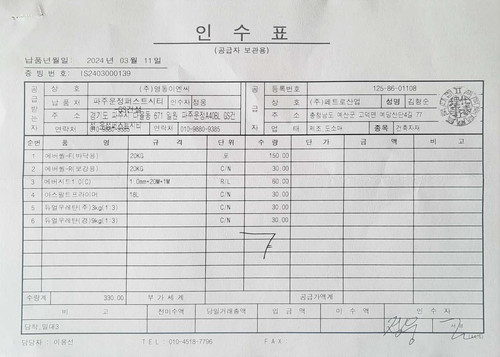 인 수 표
(공급자 보관용)
납품년월일: 2024년 03월 11일
증빙번호: IS2403000139
공급받는자 상호 (주)영동이앤씨 공급자 등록번호 125-86-01108
납품처 파주운정퍼스트시티 인수자 정품 상호 (주)페트로산업 성명 김형순
주소 경기도 파주시 671 주소 충청남도 예산군 고덕면 예덕산단4길 77
연락처 010-9880-9385 연락처 010-9880-9385 업태 제조 도소매 종목 건축자재
순번 품명 규격 단위 수량 단가 금액 비고
1 20KG 포 150.00
2 20KG C/N 30.00
3 1.0mm*20M*1M R/L 60.00
4 아스팔트프라이머 18L C/N 30.00
5 듀얼우레탄(주)3kg(1:3) C/N 30.00
6 듀얼우레탄(경)9kg(1:3) C/N 30.00
수량계 330.00 부가세계 공급가액계
비고 전미수액 당일거래총액 입금액 미수액 인수자
담당자: 이용선 TEL: 010-4518-7796 FAX